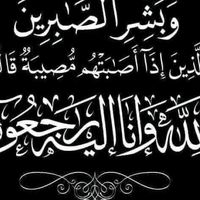 وَبَشِّرِ الصَّابِرِينَ
لَّذِينَ إِذَآ أَصَـٰبَتْهُم مُّصِيبَةٌ قَال
لله وَإِنَّا إليه راجعو